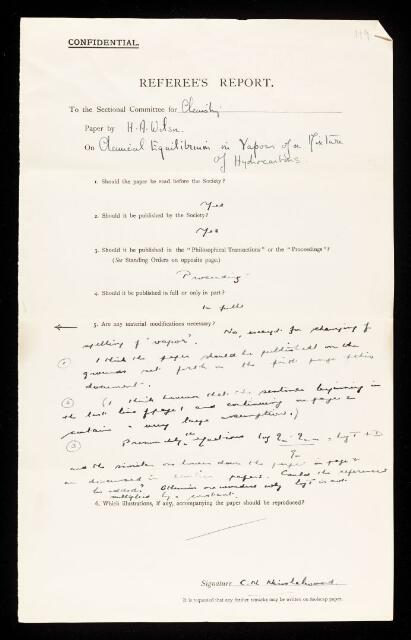 119
CONFIDENTIAL.
REFEREE'S REPORT.
To the Sectional Committee for Chemistry
Paper by H. A. Wilson.
On Chemical Equilibrium in Vapour of a Mixture
of Hydrocarbons.
1. Should the paper be read before the Society?
Yes
2. Should it be published by the Society?
Yes
3. Should it be published in the "Philosophical Transactions" or the "Proceedings"?
(See Standing Orders on opposite page.)
Proceedings
4. Should it be published in full or only in part?
In full
5. Are any material modifications necessary?
No, except for changing of
spelling of "vapor".
1 I think the paper should be published on the
grounds set forth in the first page of this
document.
2 (I think however that the sentence beginning in
the last line of page 1 and continuing on page 2
contains a very large assumption.)
3 Presumably the equations log
and the similar one lower down the page
are discussed in papers. Could the references
be added? Otherwise one wonders why log T is not
multiplied by a constant.
6. Which illustrations, if any, accompanying the paper should be reproduced?
Signature C. N. Hinshelwood.
It is requested that any further remarks may be written on foolscap paper.